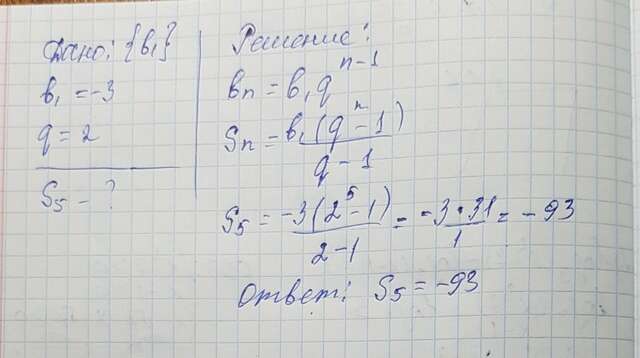 Дано: {b₁}
b₁ = -3
q = 2
S₅ - ?
Решение:
bₙ = b₁qⁿ⁻¹
Sₙ = b₁(qⁿ - 1) / q - 1
S₅ = -3(2⁵ - 1) / 2 - 1 = -3 · 31 / 1 = -93
Ответ: S₅ = -93